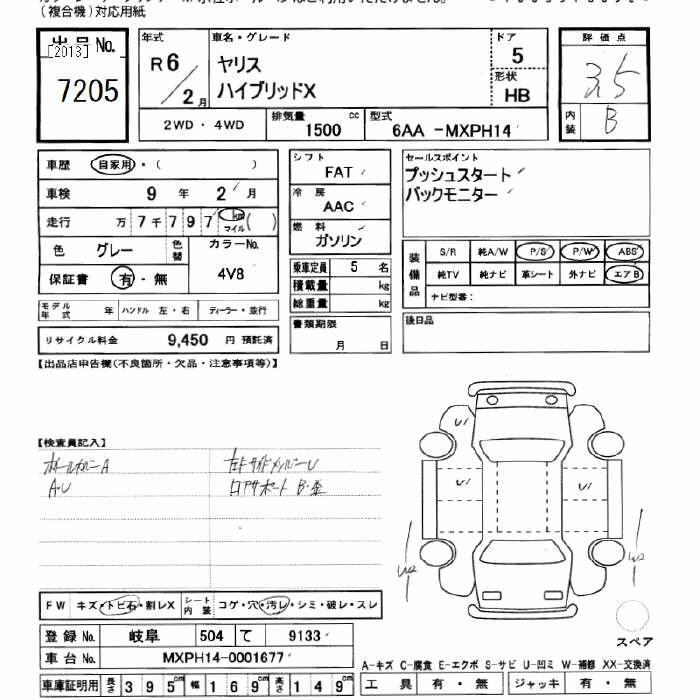 (複合機)対応用紙
出品No.
[2013]
7205
年式
R6/2月
車名・グレード
ヤリス
ハイブリッドX
ドア
5
形状
HB
評価点
3.5
内装
B
2WD・4WD
排気量
1500 cc
型式
6AA -MXPH14
車歴 自家用・( )
車検 9年 2月
走行 万7千797 km マイル ( )
色 グレー 色替 カラーNo.
4V8
保証書 有・無
モデル年式 年 ハンドル 左・右 ディーラー・並行
リサイクル料金 9,450 円 預託済
シフト
FAT
冷房
AAC
燃料
ガソリン
乗車定員 5 名
積載量 kg
総重量 kg
書類期限
月 日
セールスポイント
プッシュスタート
バックモニター
装備品
S/R 純A/W P/S P/W ABS
純TV 純ナビ 革シート 外ナビ エアB
ナビ型番:
後日品
【出品店申告欄(不良箇所・欠品・注意事項等)】
【検査員記入】
A・U
FW キズ・トビ石・割レX シート内装 コゲ・穴・汚レ・シミ・破レ・スレ
登録No. 岐阜 504 て 9133
車台No. MXPH14-0001677
車庫証明用 長さ 395cm 幅 169cm 高さ 149cm
スペア
A-キズ C-腐食 E-エクボ S-サビ U-凹ミ W-補修 XX-交換済
工具 有・無 ジャッキ 有・無